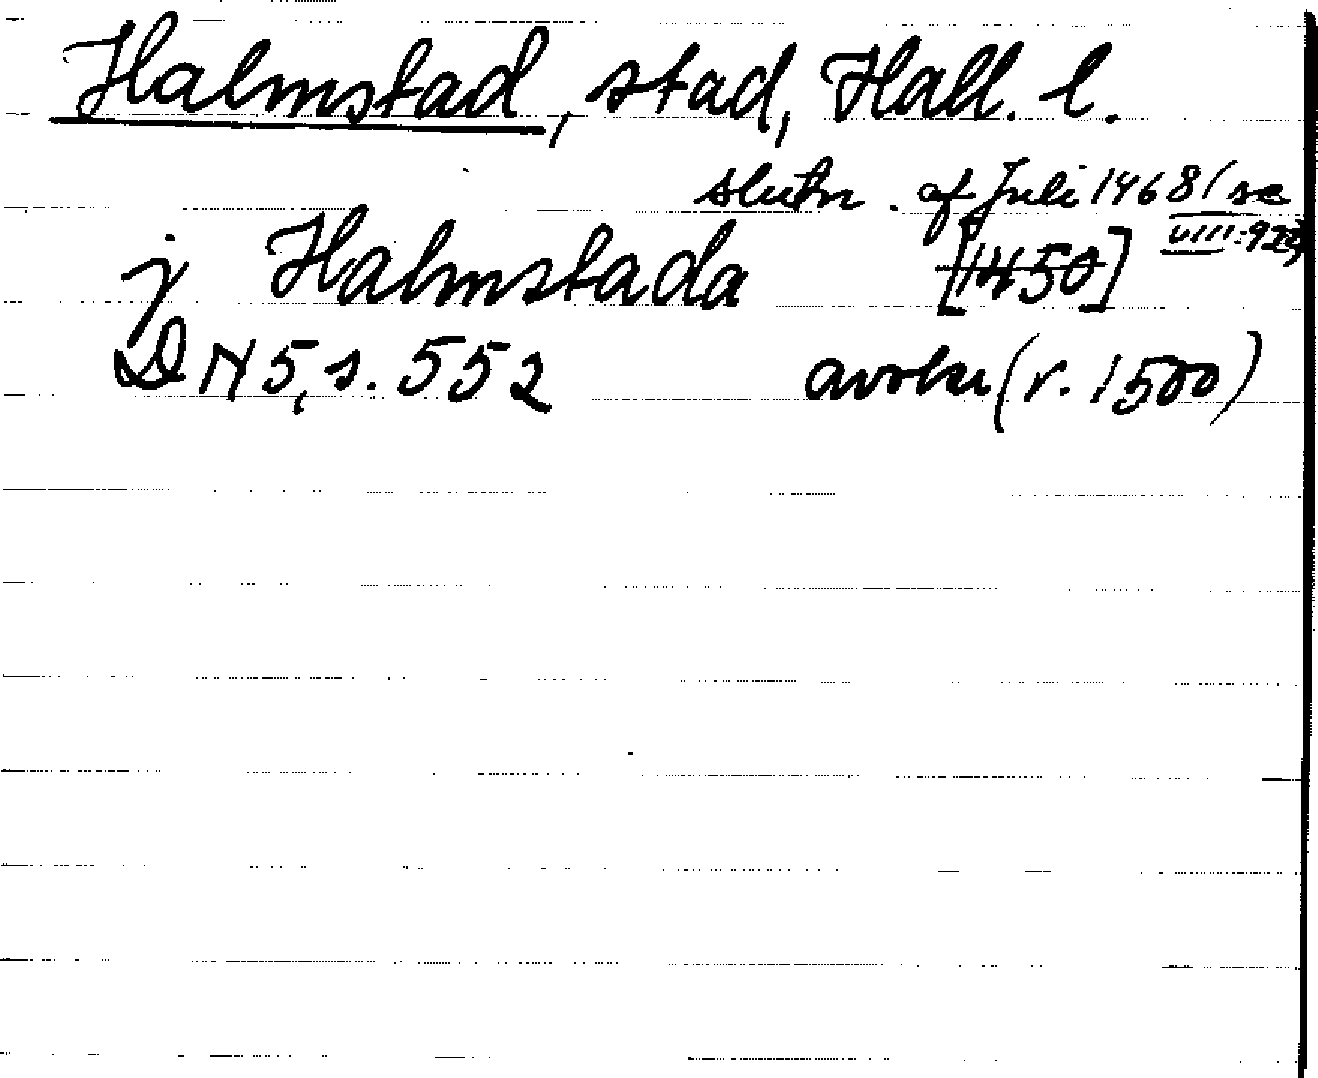 Halmstad, stad, Hall. l.
slutn. af Juli 1468 (se
VIII:923)
j Halmstada [1450]
DN 5, s. 552 avskr (r. 1500)